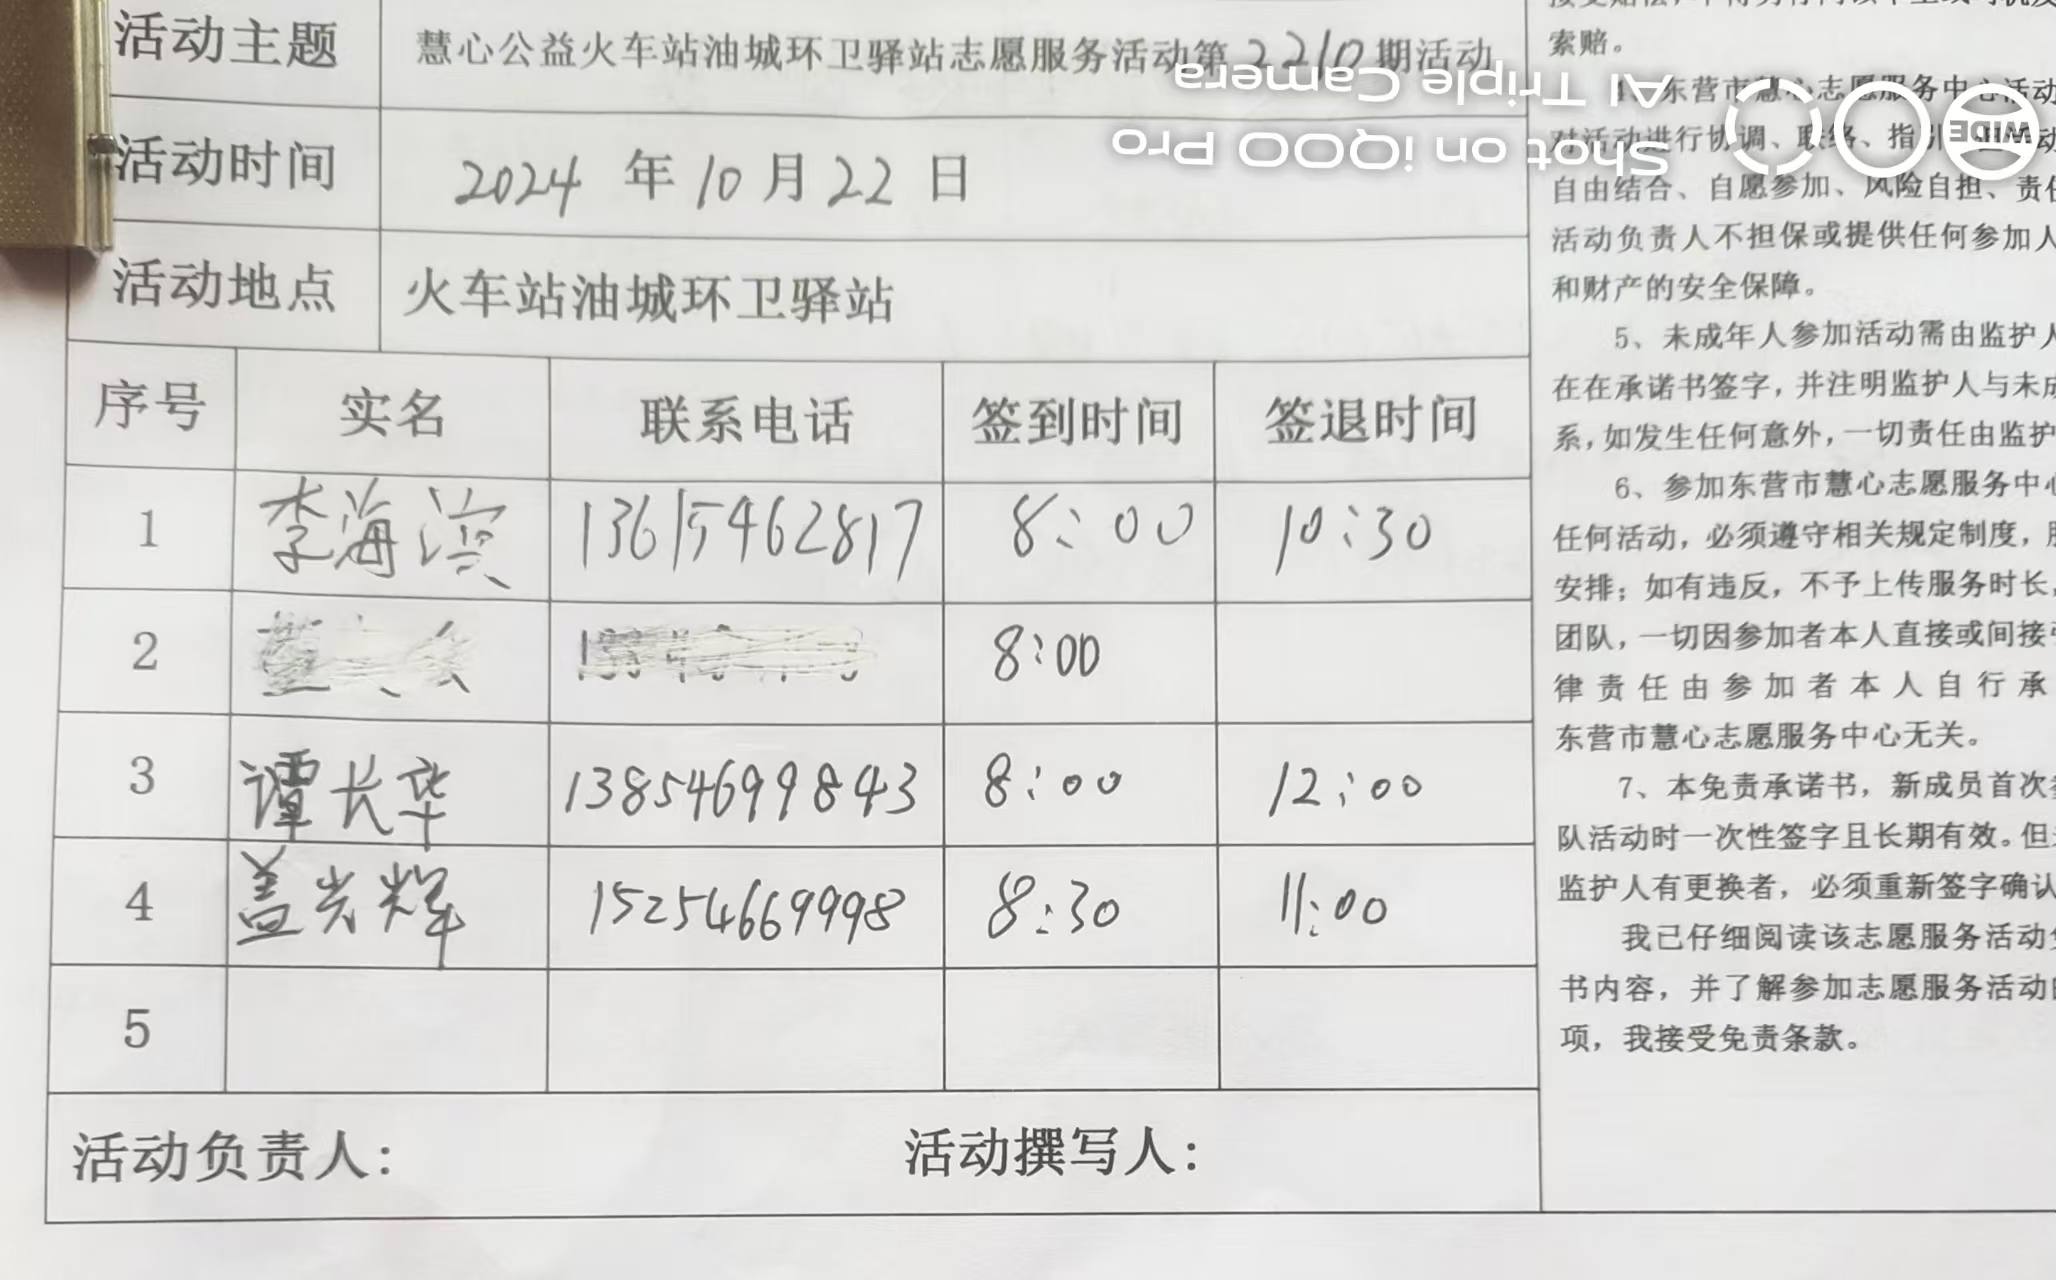 活动主题 慧心公益火车站油城环卫驿站志愿服务活动第2210期活动
活动时间 2024 年 10 月 22 日
活动地点 火车站油城环卫驿站
序号 实名 联系电话 签到时间 签退时间
1 李海滨 13615462817 8:00 10:30
2 8:00
3 谭长华 13854699843 8:00 12:00
4 盖光辉 15254669998 8:30 11:00
5
活动负责人: 活动撰写人:
索赔。
东营市慧心志愿服务中心活动
对活动进行协调、联络、指引
自由结合、自愿参加、风险自担、责任
活动负责人不担保或提供任何参加人
和财产的安全保障。
5、未成年人参加活动需由监护人
在在承诺书签字,并注明监护人与未成
系,如发生任何意外,一切责任由监护
6、参加东营市慧心志愿服务中心
任何活动,必须遵守相关规定制度,
安排;如有违反,不予上传服务时长,
团队,一切因参加者本人直接或间接
律责任由参加者本人自行承
东营市慧心志愿服务中心无关。
7、本免责承诺书,新成员首次
队活动时一次性签字且长期有效。但
监护人有更换者,必须重新签字确认
我已仔细阅读该志愿服务活动
书内容,并了解参加志愿服务活动
项,我接受免责条款。
Shot on iQOO Pro
AI Triple Camera
WIDE